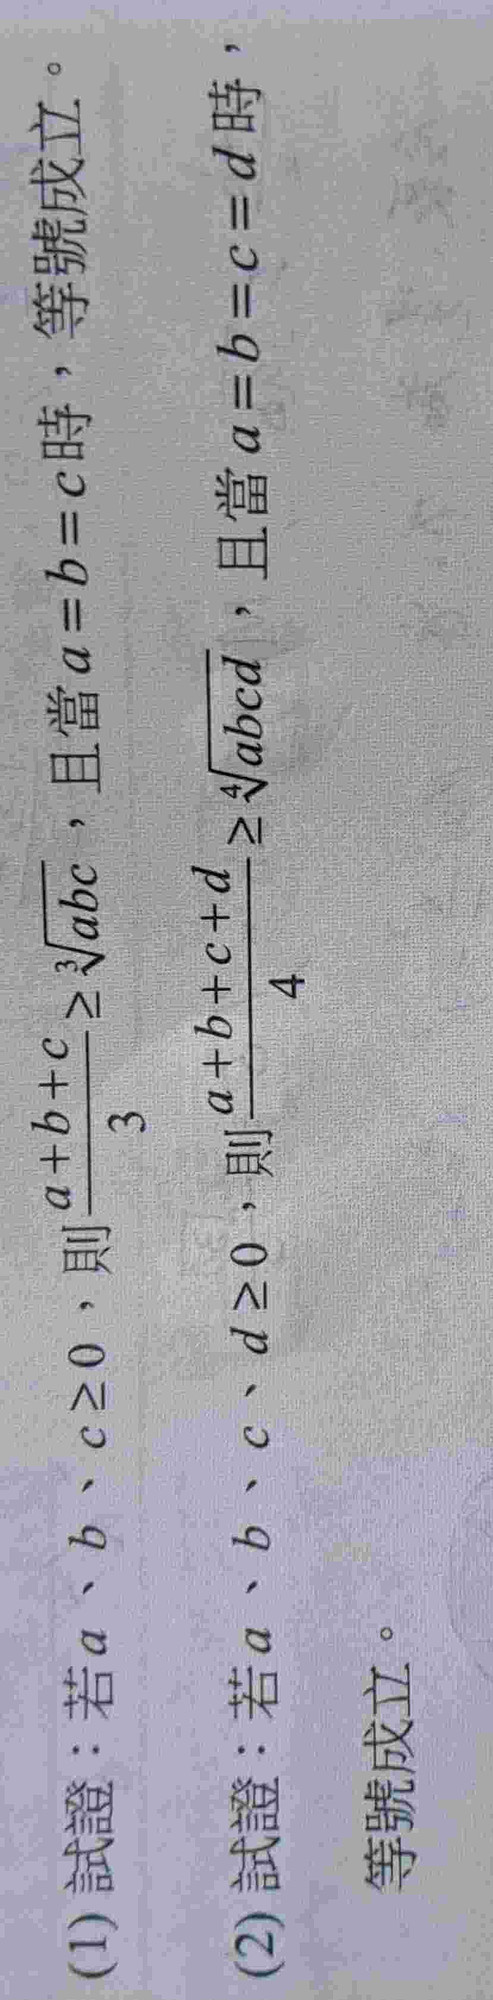 (1) 試證：若a、b、c≥0，則\frac{a+b+c}{3}≥\sqrt[3]{abc}，且當a=b=c時，等號成立。
(2) 試證：若a、b、c、d≥0，則\frac{a+b+c+d}{4}≥\sqrt[4]{abcd}，且當a=b=c=d時，
等號成立。